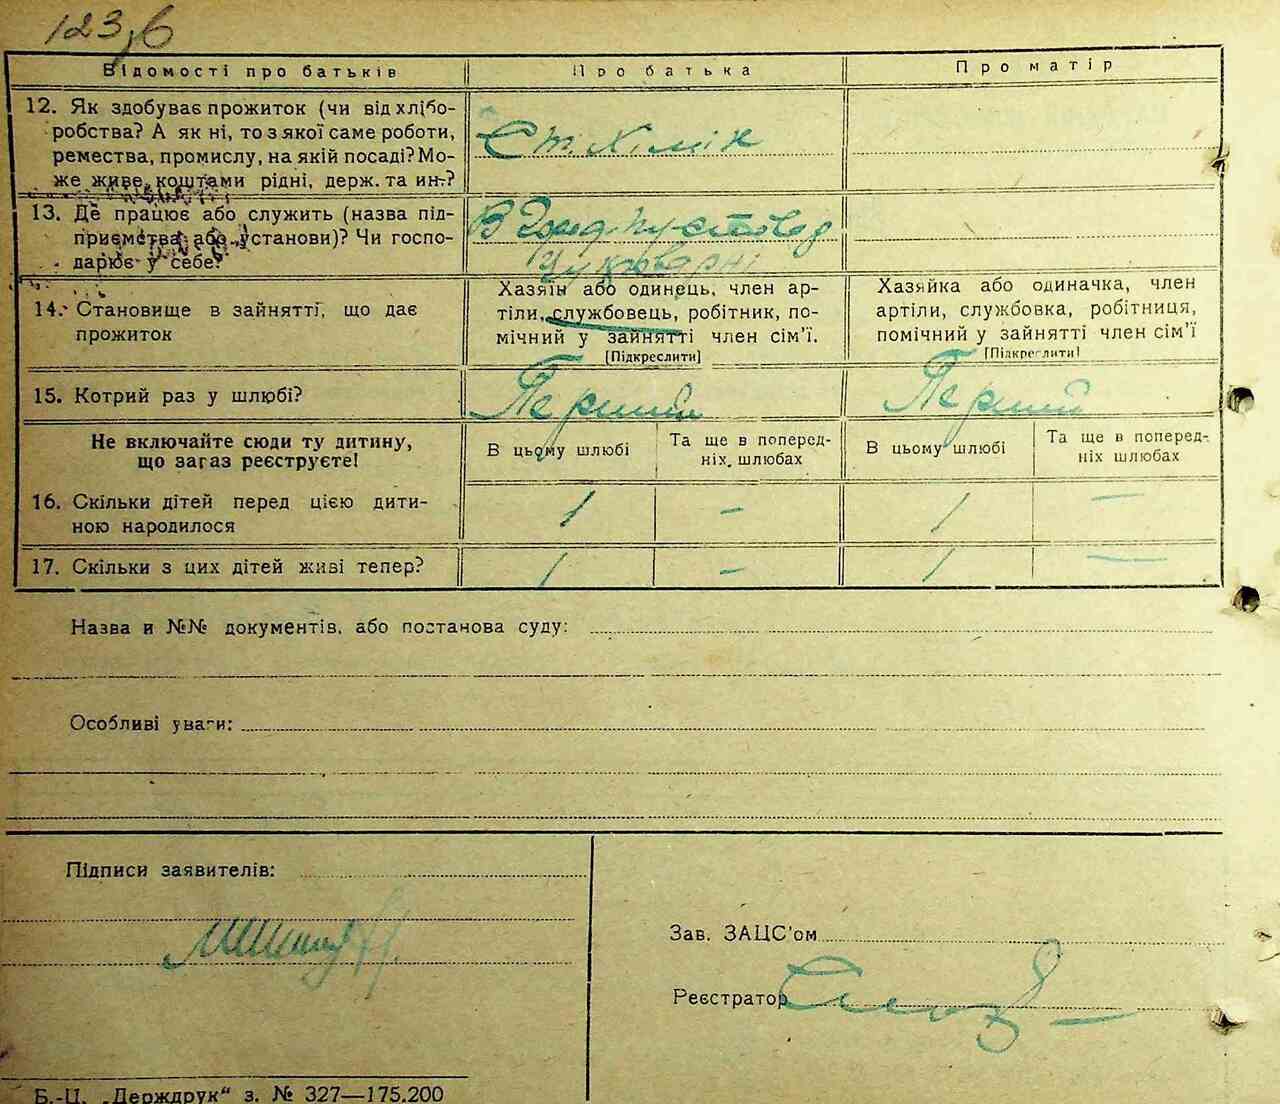 123,6
Відомості про батьків Про батька Про матір
12. Як здобуває прожиток (чи від хлібо-
робства? А як ні, то з якої саме роботи,
ремества, промислу, на якій посаді? Мо-
же живе коштами рідні, держ. та ин.?
Ст. Хімік
13. Де працює або служить (назва під-
приємства або установи)? Чи госпо-
дарює у себе?
В
14. Становище в зайнятті, що дає
прожиток
Хазяїн або одинець, член ар-
тіли, службовець, робітник, по-
мічний у зайнятті член сім'ї.
[Підкреслити]
Хазяйка або одиначка, член
артіли, службовка, робітниця,
помічний у зайнятті член сім'ї
[Підкреслити]
15. Котрий раз у шлюбі? Перший Перший
Не включайте сюди ту дитину,
що загаз реєструєте!
В цьому шлюбі
Та ще в поперед-
ніх. шлюбах
В цьому шлюбі
Та ще в поперед-
ніх шлюбах
16. Скільки дітей перед цією дити-
ною народилося
1 – 1 –
17. Скільки з цих дітей живі тепер? 1 – 1 –
Назва и №№ документів, або постанова суду:
Особливі уваги:
Підписи заявителів:
Зав. ЗАЦС'ом
Реєстратор
Б.-Ц. „Держдрук" з. № 327—175.200